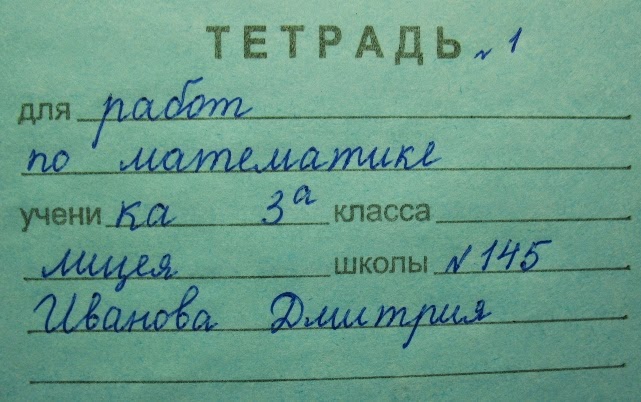 ТЕТРАДЬ № 1
для работ
по математике
ученика 3а класса
лицея школы № 145
Иванова Дмитрия